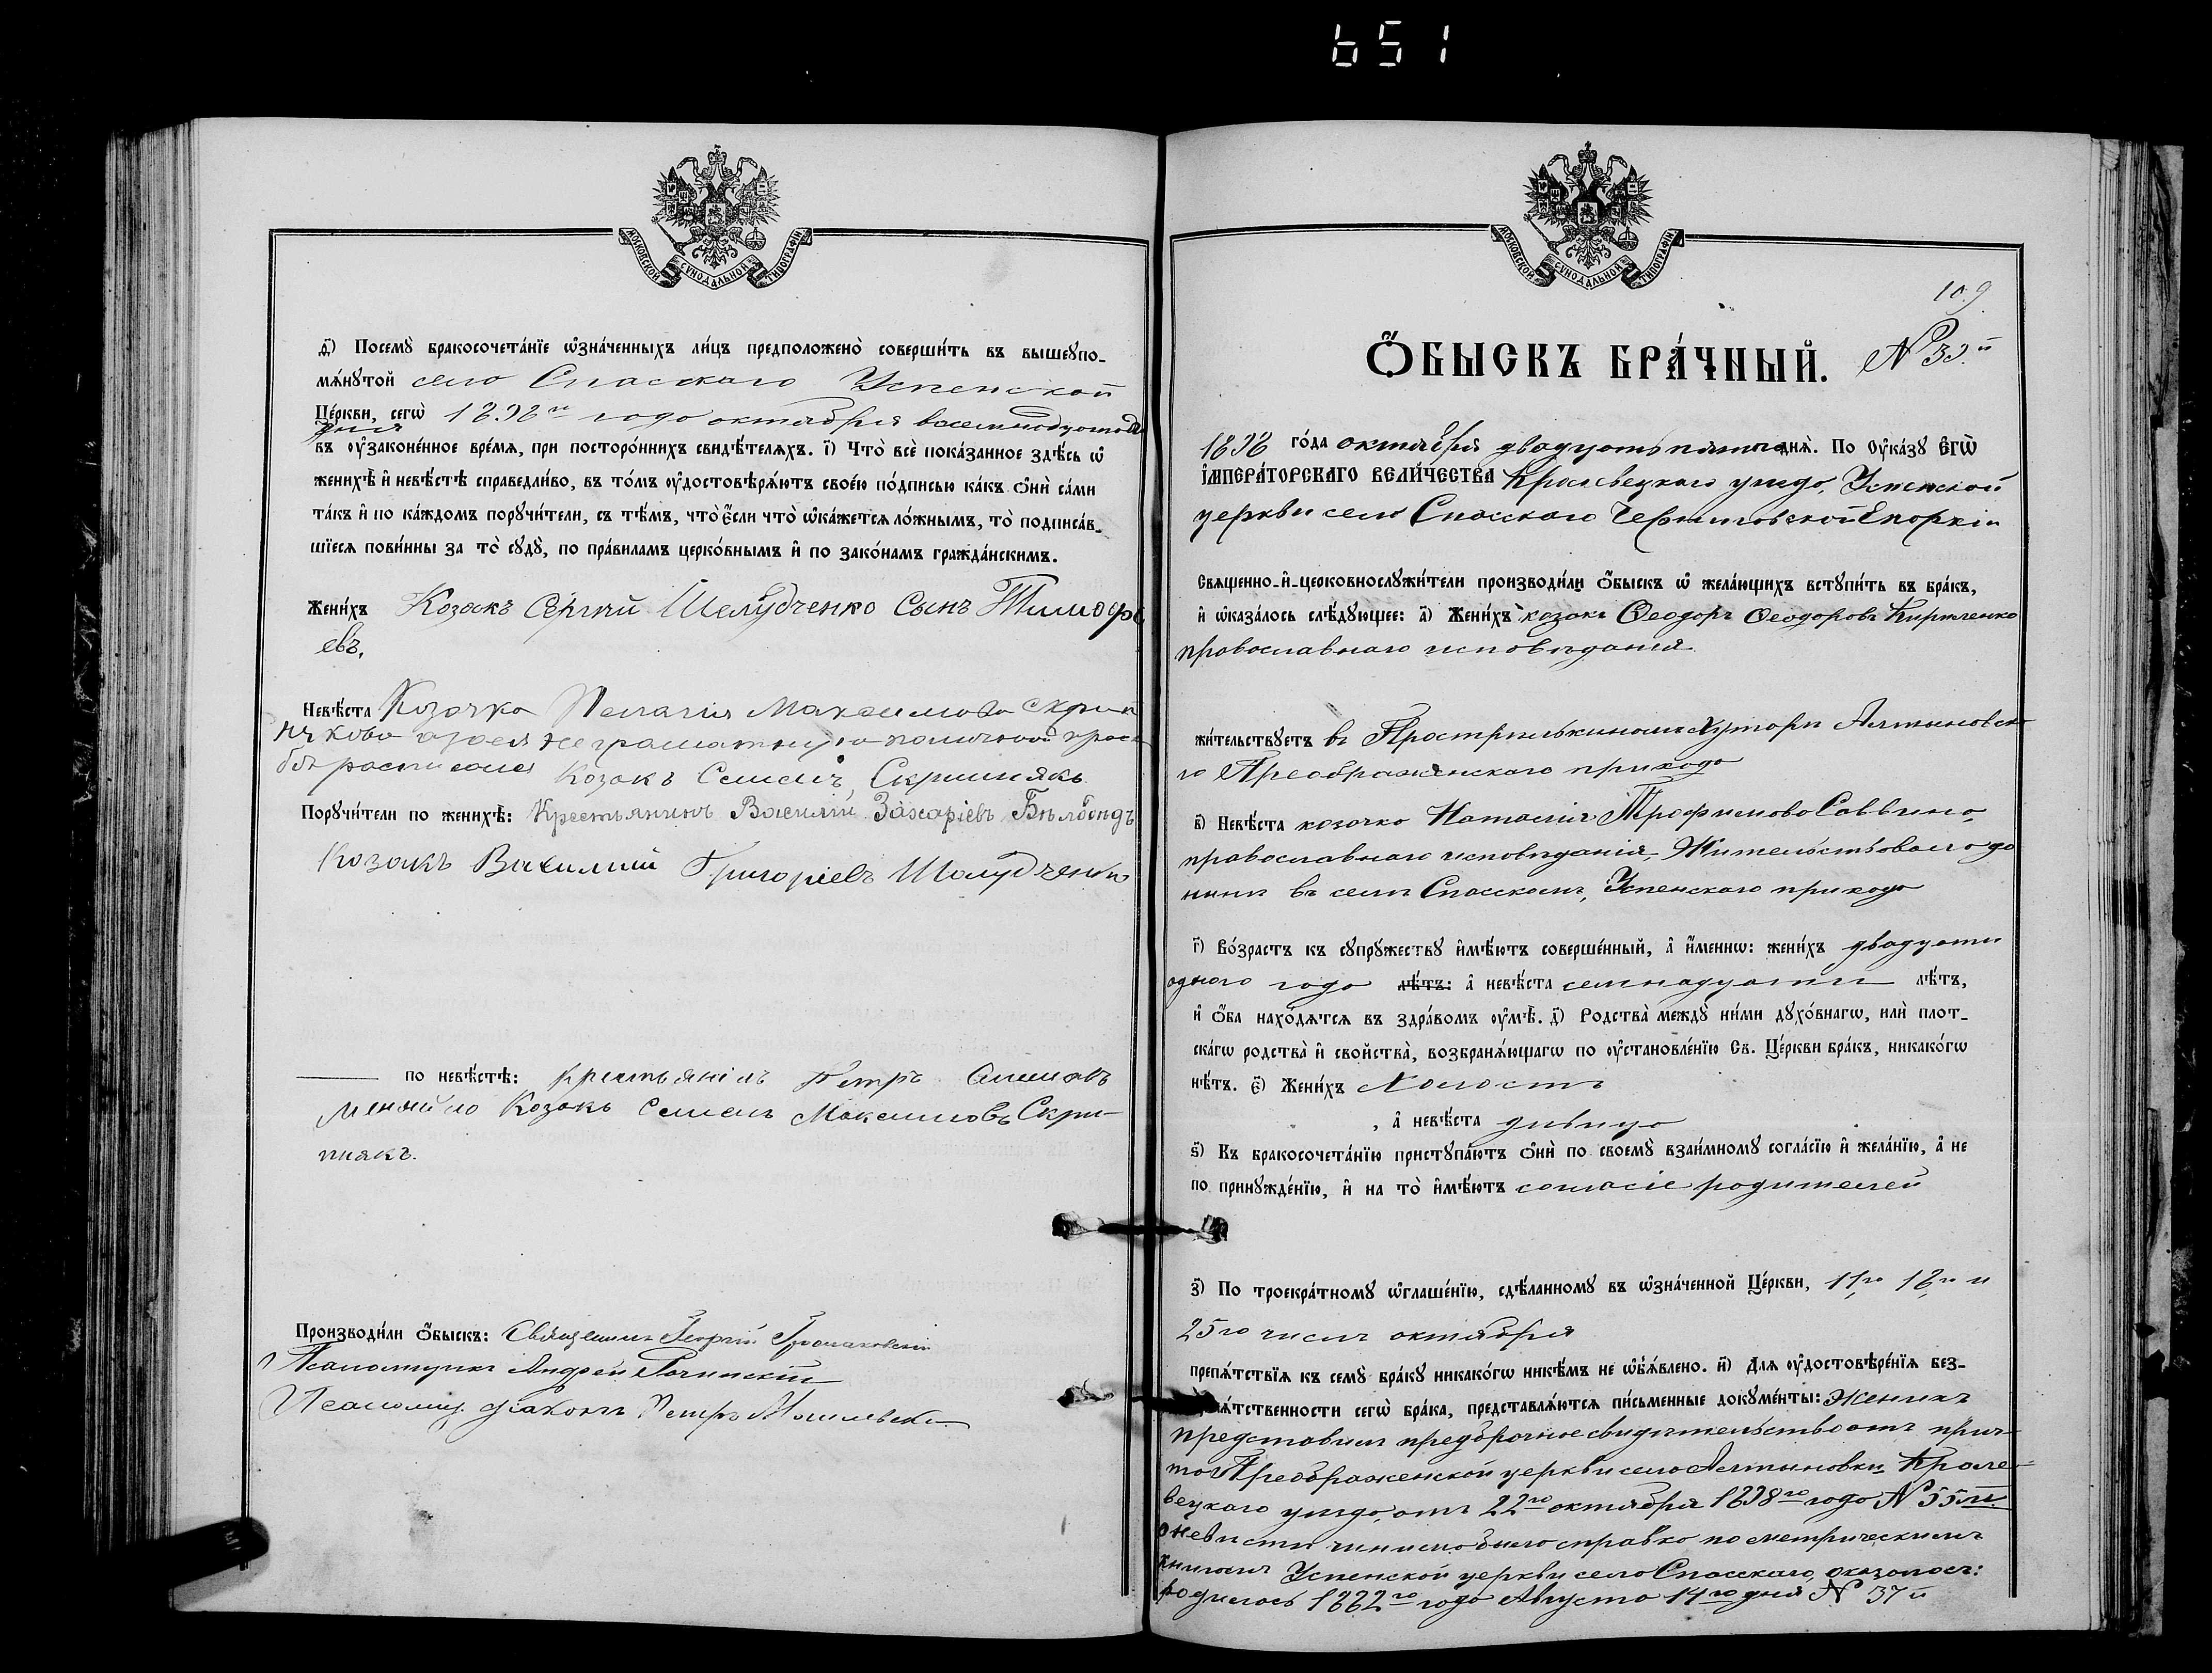 651
МОСКОВСКОЙ СѴНОДАЛЬНОЙ ТИПОГРАФІИ
д҃) Посемꙋ̀ бракосочета́нїе ѡ҆зна́ченныхъ ли́цъ предположено̀ соверши́ть въ вышеꙋпо-
мѧ́нꙋтой село Спасскаго Успенской
Це́ркви, сегѡ̀ 1898го года октября восемнадцатаго
дня
въ ᲂу҆зако́ненное вре́мѧ, при посторо́ннихъ свидѣ́телѧхъ. і҃) Что̀ всѐ пока́занное здѣ́сь ѡ҆
женихѣ̀ и҆ невѣ́стѣ справедли́во, въ то́мъ ᲂу҆достовѣрѧ́ютъ свое́ю по́дписью ка́къ ѻ҆нѝ са́ми
та́къ и҆ по ка́ждомъ порꙋчи́тели, съ тѣ́мъ, что̀ є҆́сли что̀ ѡ҆ка́жетсѧ ло́жнымъ, то̀ подписа́в-
шїесѧ пови́нны за то̀ сꙋдꙋ̀, по пра́виламъ церко́внымъ и҆ по зако́намъ гражда́нскимъ.
Жени́хъ Козакъ Сергій Шелудченко Сынъ Тимофе
евъ.
Невѣ́ста Козачка Пелагія Максимова Скрип
някова а за нея неграмотную по личной прось
бѣ росписался Козакъ Семенъ Скрипнякъ
Порꙋчи́тели по женихѣ̀: Крестьянинъ Василій Захаріевъ
Козакъ Василий Григоріевъ Шолудченко
по невѣ́стѣ: Крестьянінъ Петръ
Козакъ Семенъ Максимовъ Скри-
пнякъ.
Производи́ли ѻ҆́быскъ: Священникъ Георгій Громаковскій
Псаломщикъ Андрей
Псаломщ. діаконъ Петръ
МОСКОВСКОЙ СѴНОДАЛЬНОЙ ТИПОГРАФІИ
109
Ѻ҆́БЫСКЪ БРА́ЧНЫЙ. N 39.й
1898 го́да октября двадцать пятаго днѧ̀. По ᲂу҆ка́зꙋ Є҆гѡ̀
І҆мпера́торскаго Вели́чества Кролевецкаго уѣзда, Успенской
церкви села Спасского Черниговской Епархіи
Свѧще́нно-и҆-церковнослꙋжи́тели производи́ли ѻ҆́быскъ ѡ҆ жела́ющихъ встꙋпи́ть въ бра́къ,
и҆ ѡ҆каза́лось слѣ́дꙋющее: а҃) Жени́хъ козакъ Ѳеодоръ Ѳеодоровъ Кириленко
православнаго исповѣданія
жи́тельствꙋетъ въ Прострѣлькиномъ Хуторѣ Алтыновско
го Преображенскаго прихода
в҃) Невѣ́ста козачка Наталія Трофимова Саввина,
православнаго исповѣданія, Жительствовала до
нынѣ въ селѣ Спасскомъ, Успенскаго прихода
г҃) Во́зрастъ къ сꙋпрꙋ́жествꙋ и҆мѣ́ютъ соверше́нный, а҆ и҆́меннѡ: жени́хъ двадцати
одного года лѣ́тъ: а҆ невѣ́ста семнадцати лѣ́тъ,
и҆ ѻ҆́ба нахо́дѧтсѧ въ здра́вомъ ᲂу҆мѣ̀. д҃) Родства̀ междꙋ̀ ни́ми дꙋхо́внагѡ, илѝ плот-
ска́гѡ родства̀ и҆ сво́йства̀, возбранѧ́ющагѡ по ᲂу҆становле́нїю Св. Це́ркви бра́къ, никако́гѡ
нѣ́тъ. є҃) Жени́хъ Холостъ
, а҆ невѣ́ста дѣвица
ѕ҃) Къ бракосочета́нїю пристꙋпа́ютъ ѻ҆нѝ по своемꙋ̀ взаи́мномꙋ согла́сїю и҆ жела́нїю, а҆ не
по принꙋжде́нїю, и҆ на то̀ и҆мѣ́ютъ согласіе родителей
з҃) По троекра́тномꙋ ѡ҆глаше́нїю, сдѣ́ланномꙋ въ ѡ҆зна́ченной Це́ркви, 11го, 18го и
25го числъ октября
препѧ́тствїѧ къ семꙋ̀ бра́кꙋ никако́гѡ никѣ́мъ не ѡ҆бъѧ́влено. и҃) Длѧ ᲂу҆достовѣре́нїѧ без-
препѧ́тственности сегѡ̀ бра́ка, представлѧ́ютсѧ пи́сьменные докꙋме́нты: Женихъ
представилъ предбрачное свидѣтельство отъ прич-
та Преображенской церкви села Алтыновки Кроле-
вецкаго уѣзда, отъ 22го октября 1898го года N 55й
о невѣстѣ чинима была справка по метрическимъ
книгамъ Успенской церкви села Спасскаго, оказалось:
родилась 1882го года Августа 14го дня N 37й